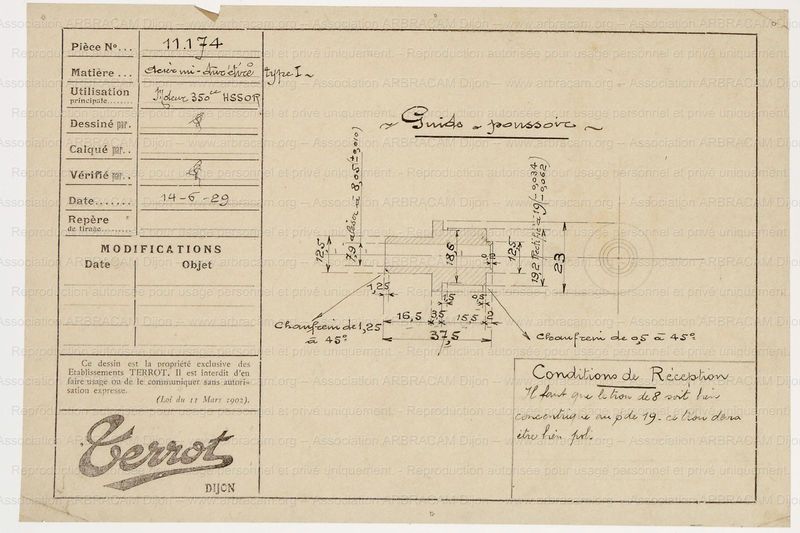 Pièce N°... 11.174
Matière ... acier mi-dur étiré type I
Utilisation
principale........ Moteur 350cc HSSOR
Dessiné par.
Calqué par..
Vérifié par..
Date....... 14-6-29
Repère
de tirage.........
MODIFICATIONS
Date Objet
Ce dessin est la propriété exclusive des
Etablissements TERROT. Il est interdit d'en
faire usage ou de le communiquer sans autori-
sation expresse.
(Loi du 11 Mars 1902).
Terrot
DIJON
Guide poussoir
12,5
7,9 aléser à 8,05
18,6
12,5
19,2 Rectifié à 19 (-0,034
-0,062)
23
1,25
16,5 3,5 15,5
37,5
Chanfrein de 1,25
à 45°
Chanfrein de 0,5 à 45°
Conditions de Réception
Il faut que le trou de 8 soit bien
concentrique au ø de 19 - ce trou devra
être bien poli.
Association ARBRACAM Dijon – www.arbracam.org
Reproduction autorisée pour usage personnel et privé uniquement.